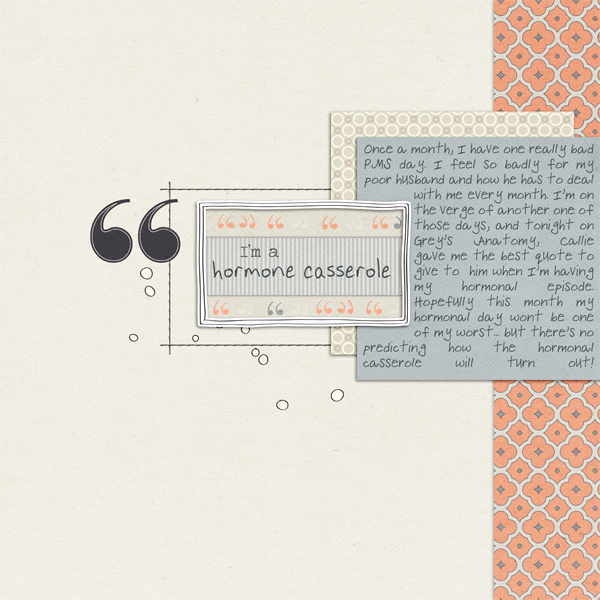 I'm a
hormone casserole
Once a month, I have one really bad
PMS day. I feel so badly for my
poor husband and how he has to deal
with me every month. I'm on
the verge of another one of
those days, and tonight on
Grey's Anatomy, Callie
gave me the best quote to
give to him when I'm having
my hormonal episode.
Hopefully this month my
hormonal day wont be one
of my worst... but there's no
predicting how the hormonal
casserole will turn out!